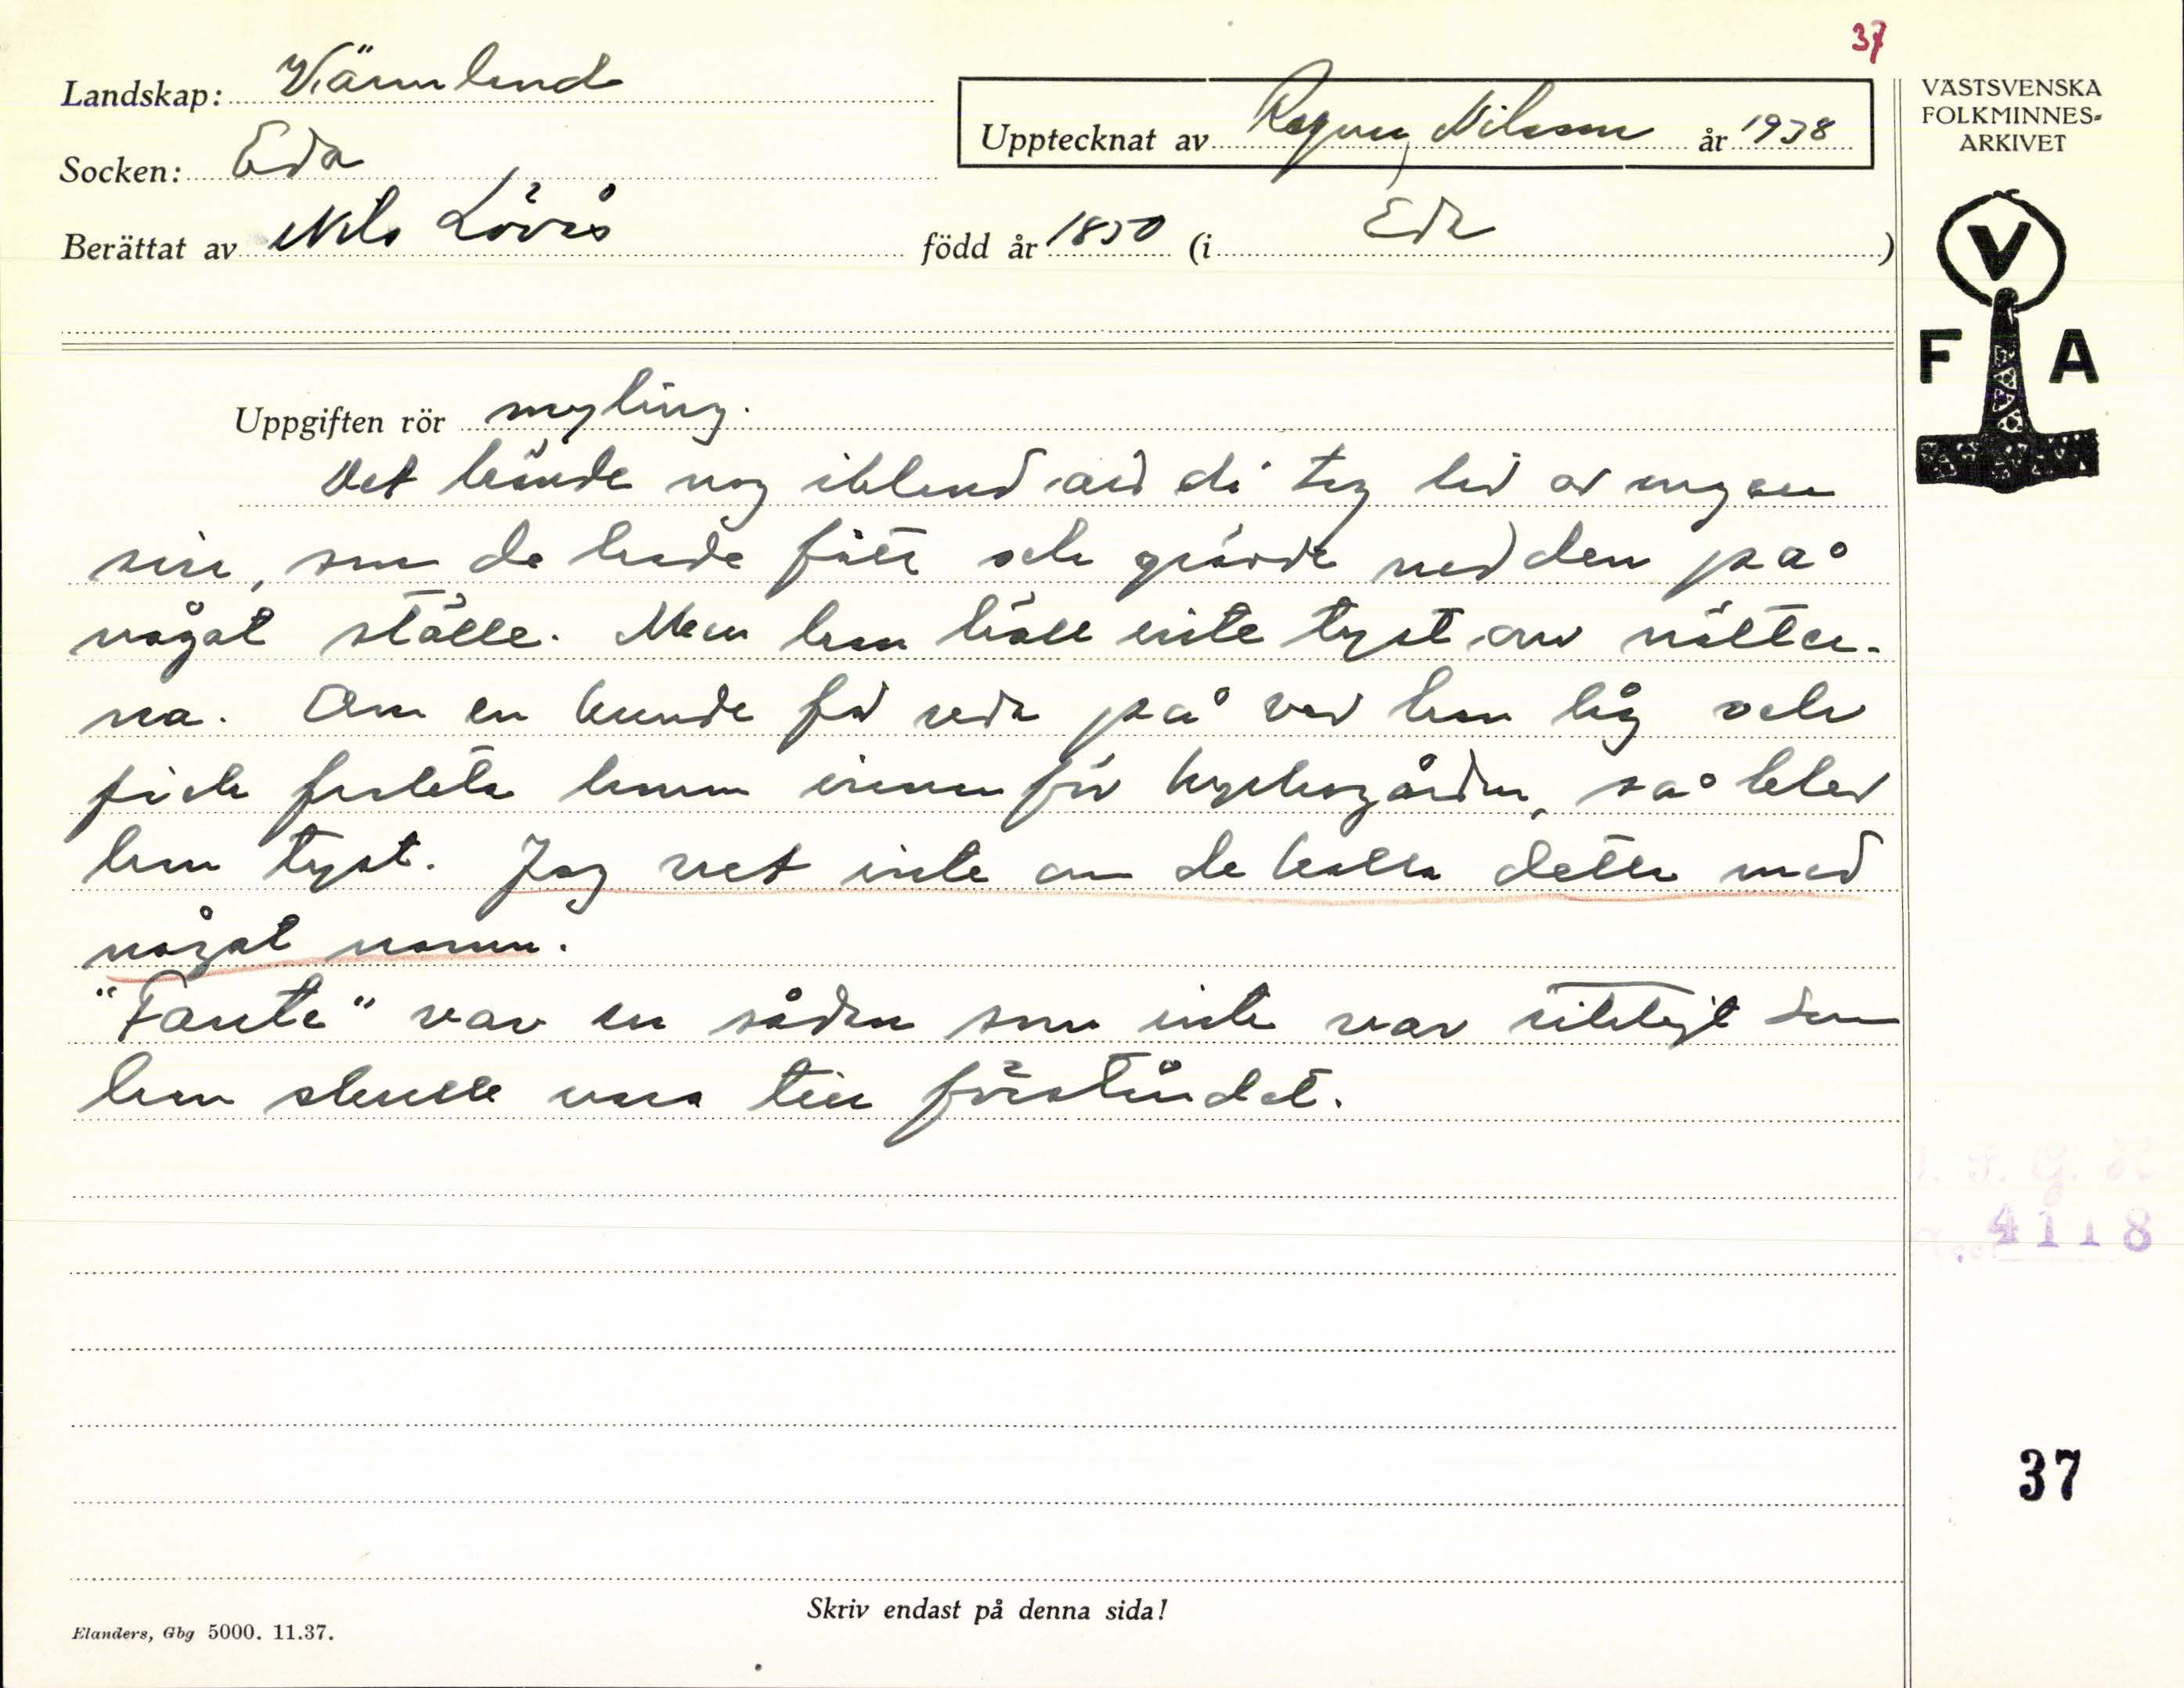 37
Landskap: Värmland
Upptecknat av Ragnar Nilsson år 1938
Socken: Eda
Berättat av Nils Lövås född år 1850 (i Eda)
VÄSTSVENSKA
FOLKMINNES-
ARKIVET
V
F A
Uppgiften rör myling.
Det hände nog ibland att di tog livd av ungen
sin, som de hade fått och grävde ned den på
något ställe. Men han höll inte tyst om nätter-
na. Om en kunde få reda på var han låg och
fick flytta honom innanför kyrkogården, så blev
han tyst. Jag vet inte om de kalla detta med
något namn.
"Fante" var en sådan som inte var riktigt som
han skulle vara till förståndet.
4118
37
Skriv endast på denna sida!
Elanders, Gbg 5000. 11.37.